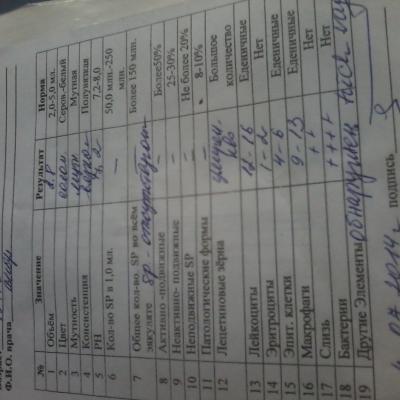 Ф.И.О. врача
№ Значение Результат Норма
1 Объём 2,0-5,0 мл.
2 Цвет Серов.-белый
3 Мутность Мутная
4 Консистенция Полувязкая
5 PH 7,2 7,2-8,0
6 Кол-во SP в 1,0 мл. — 50,0 млн.-250 млн.
7 Общее кол-во SP во всём эякуляте sp - отсутствуют Более 150 млн.
8 Активно -подвижные — Более50%
9 Неактивно- подвижные — 25-30%
10 Неподвижные SP — Не более 20%
11 Патологические формы — 8-10%
12 Лецетиновые зёрна кво Большое количество
13 Лейкоциты 12-16 Еденичные
14 Эритроциты 1-2 Нет
15 Эпит. клетки 4-6 Еденичные
16 Макрофаги 9-13 Еденичные
17 Слизь ++ Нет
18 Бактерии ++++ Нет
19 Другие Элементы обнаружен
07 2014г. подпись